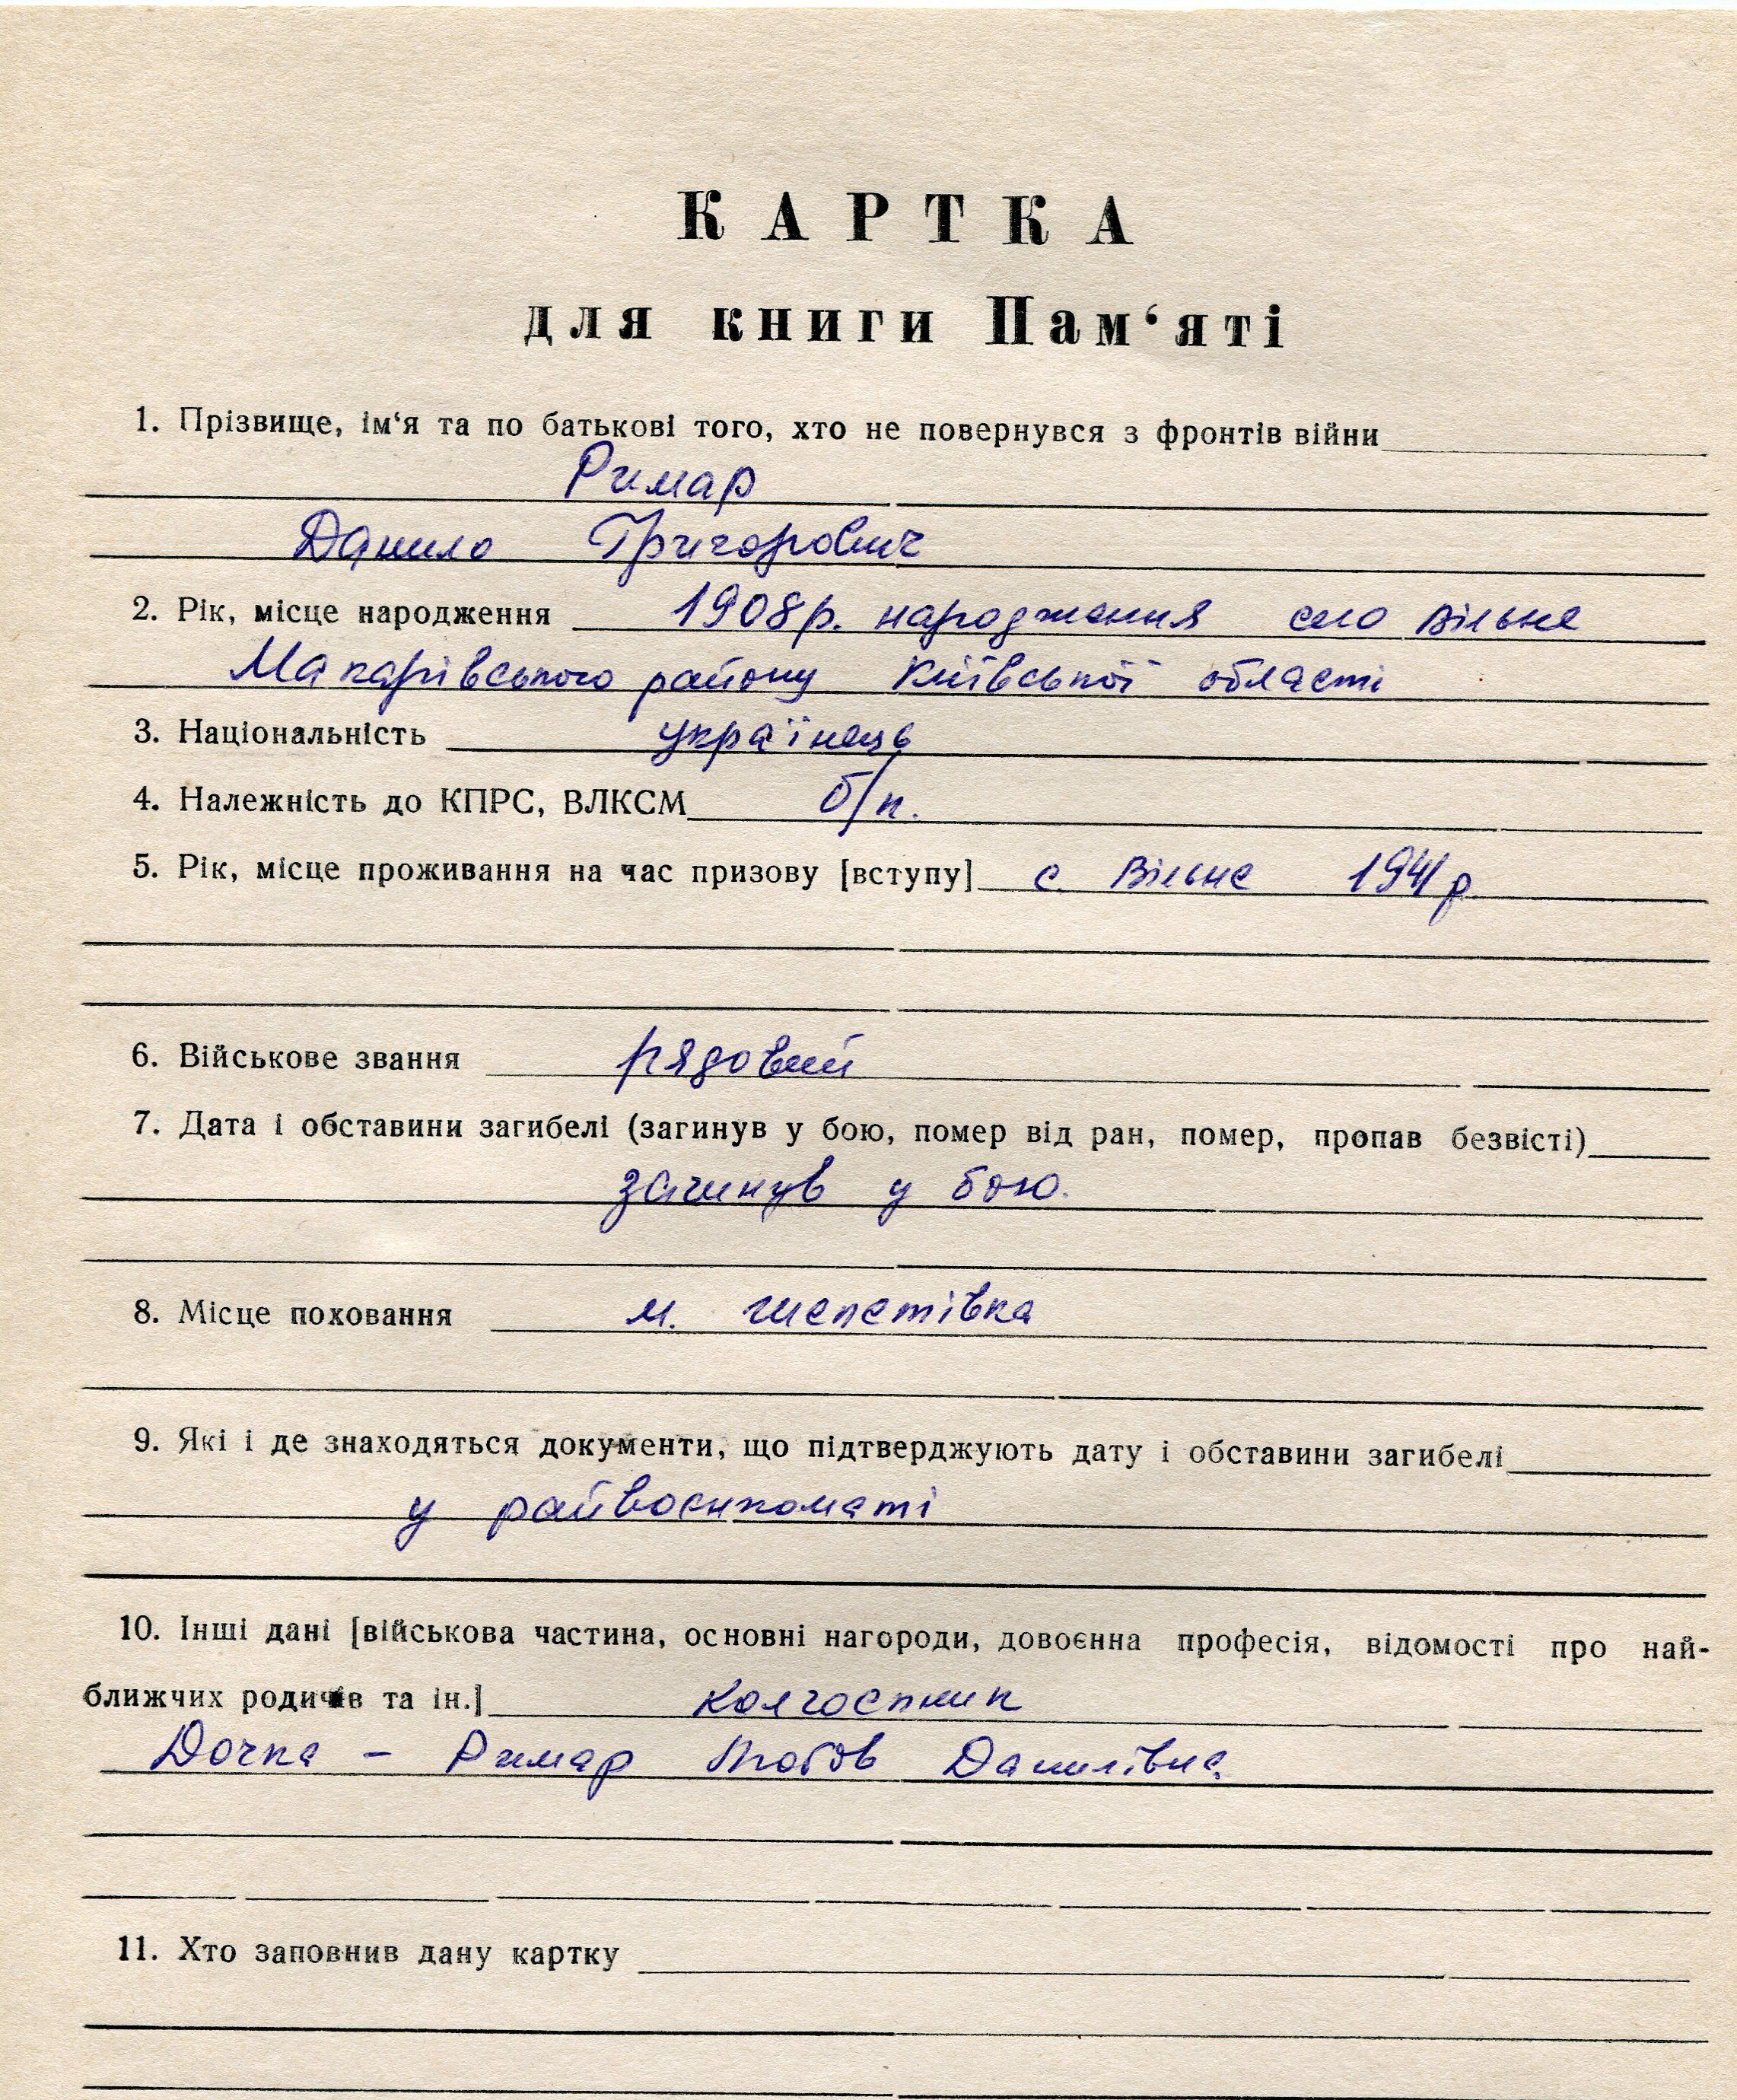 КАРТКА
для книги Пам‘яті
1. Прізвище, ім‘я та по батькові того, хто не повернувся з фронтів війни
Римар
Данило Григорович
2. Рік, місце народження 1908 р. народження село Вільне
Макарівського району Київської області
3. Національність українець
4. Належність до КПРС, ВЛКСМ б/п.
5. Рік, місце проживання на час призову [вступу] с. Вільне 1941 р.
6. Військове звання рядовий
7. Дата і обставини загибелі (загинув у бою, помер від ран, помер, пропав безвісті)
загинув у бою.
8. Місце поховання м. Шепетівка
9. Які і де знаходяться документи, що підтверджують дату і обставини загибелі
у райвоєнкоматі
10. Інші дані [військова частина, основні нагороди, довоєнна професія, відомості про най-
ближчих родичів та ін.] колгоспник
Дочка – Римар Любов Данилівна.
11. Хто заповнив дану картку